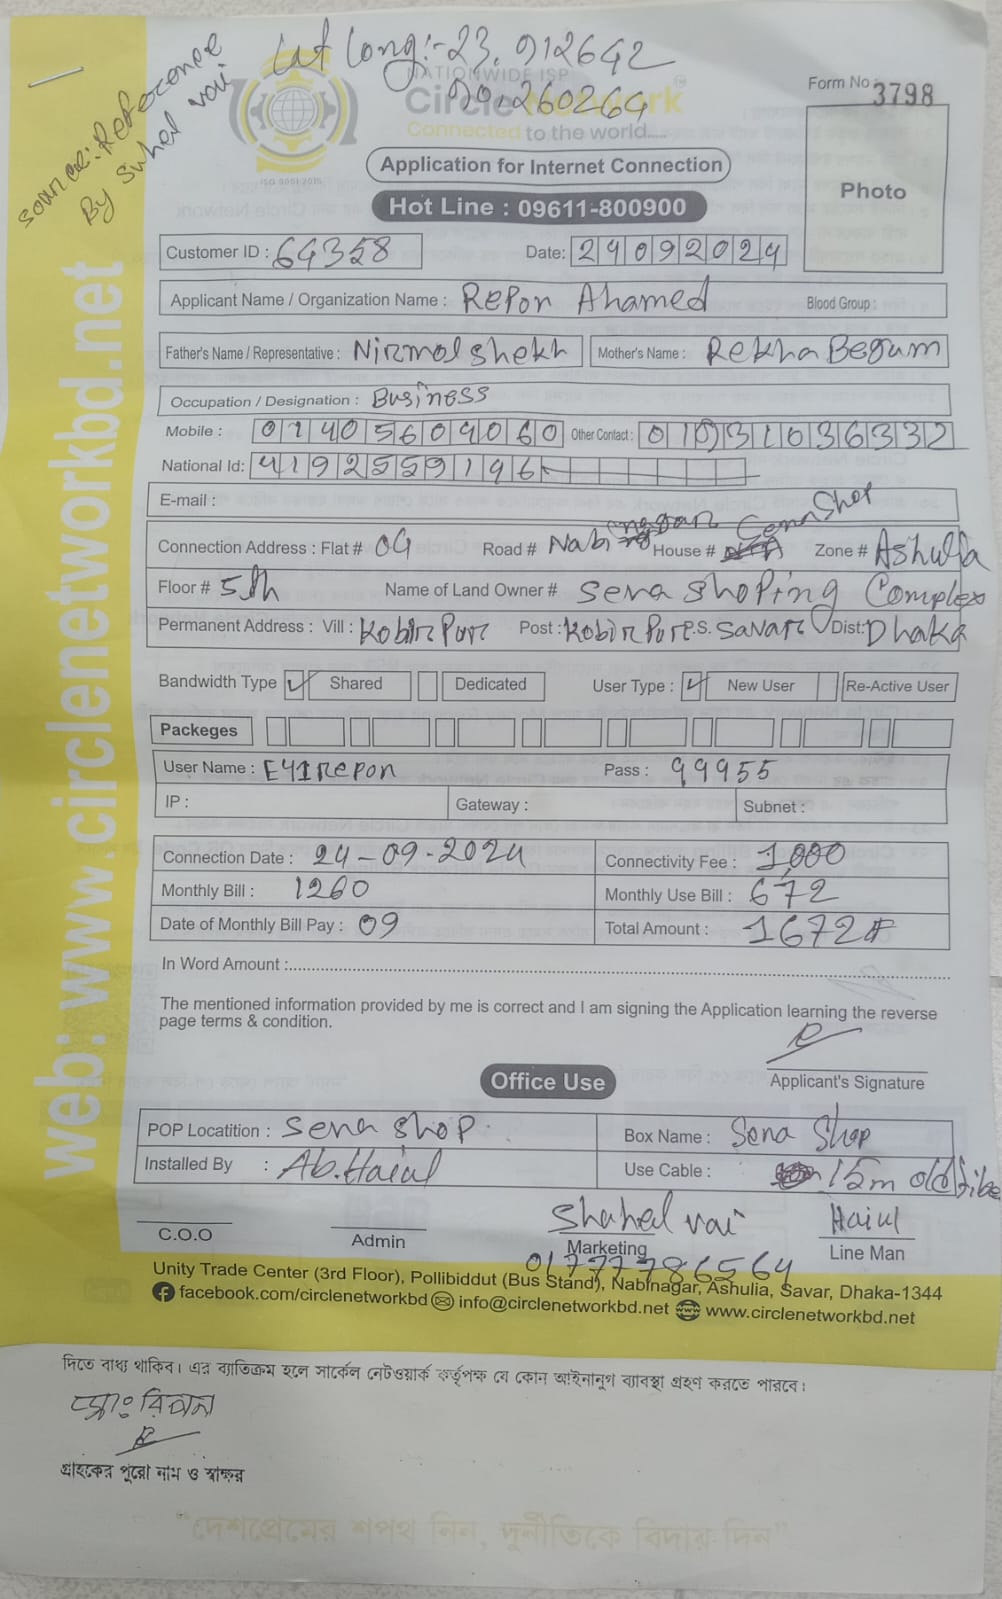 Lat Long:-23.912642
90.260264
source: Reference
By Suhel vai
NATIONWIDE ISP
Circle Network
Connected to the world....
ISO 9001:2015
Form No: 3798
Application for Internet Connection
Photo
Hot Line : 09611-800900
Customer ID : 64358 Date: 24092024
Applicant Name / Organization Name : Repon Ahamed Blood Group :
Father's Name / Representative : Nirmol Shekh Mother's Name : Rekha Begum
Occupation / Designation : Business
Mobile : 01405609060 Other Contact : 01
National Id: 4192559196
E-mail :
Connection Address : Flat # 04 Road # Nabinagar House # Sena Shop Zone # Ashulia
Floor # 5th Name of Land Owner # Sena Shoping Complex
Permanent Address : Vill : Kobirpur Post : Kobirpur P.S. Savar Dist: Dhaka
Bandwidth Type ✓ Shared Dedicated User Type : ✓ New User Re-Active User
Packeges
User Name : E41Repon Pass : 99955
IP : Gateway : Subnet :
Connection Date : 24-09-2024 Connectivity Fee : 1,000
Monthly Bill : 1260 Monthly Use Bill : 672
Date of Monthly Bill Pay : 09 Total Amount : 1672#
In Word Amount :
The mentioned information provided by me is correct and I am signing the Application learning the reverse
page terms & condition.
Applicant's Signature
Office Use
POP Locatition : Sena Shop. Box Name : Sena Shop
Installed By : Ab. Haiul Use Cable : 15m old fibe
Shahed vai Haiul
C.O.O Admin Marketing Line Man
01777786564
Unity Trade Center (3rd Floor), Pollibiddut (Bus Stand), Nabinagar, Ashulia, Savar, Dhaka-1344
facebook.com/circlenetworkbd info@circlenetworkbd.net www.circlenetworkbd.net
web: www.circlenetworkbd.net
দিতে বাধ্য থাকিব। এর ব্যতিক্রম হলে সার্কেল নেটওয়ার্ক কর্তৃপক্ষ যে কোন আইনানুগ ব্যাবস্থা গ্রহণ করতে পারবে।
মোঃ রিপন
গ্রাহকের পুরো নাম ও স্বাক্ষর
"দেশপ্রেমের শপথ নিন, দুর্নীতিকে বিদায় দিন"